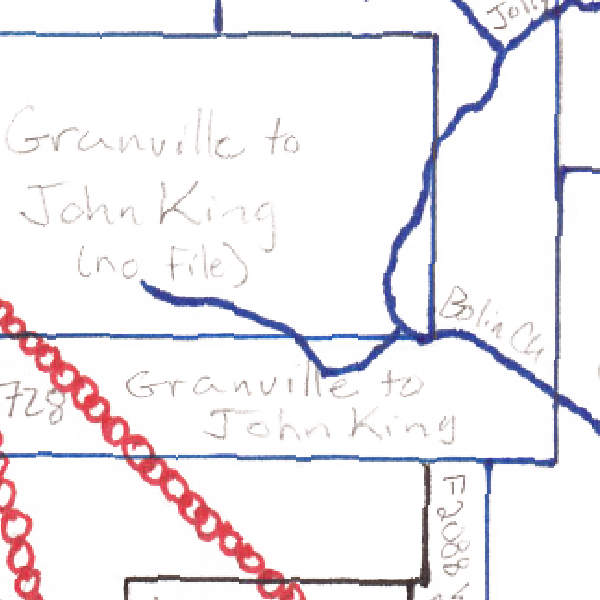 Jolly
Granville to
John King
(no File)
Bolin Ck
728
Granville to
John King
F2088